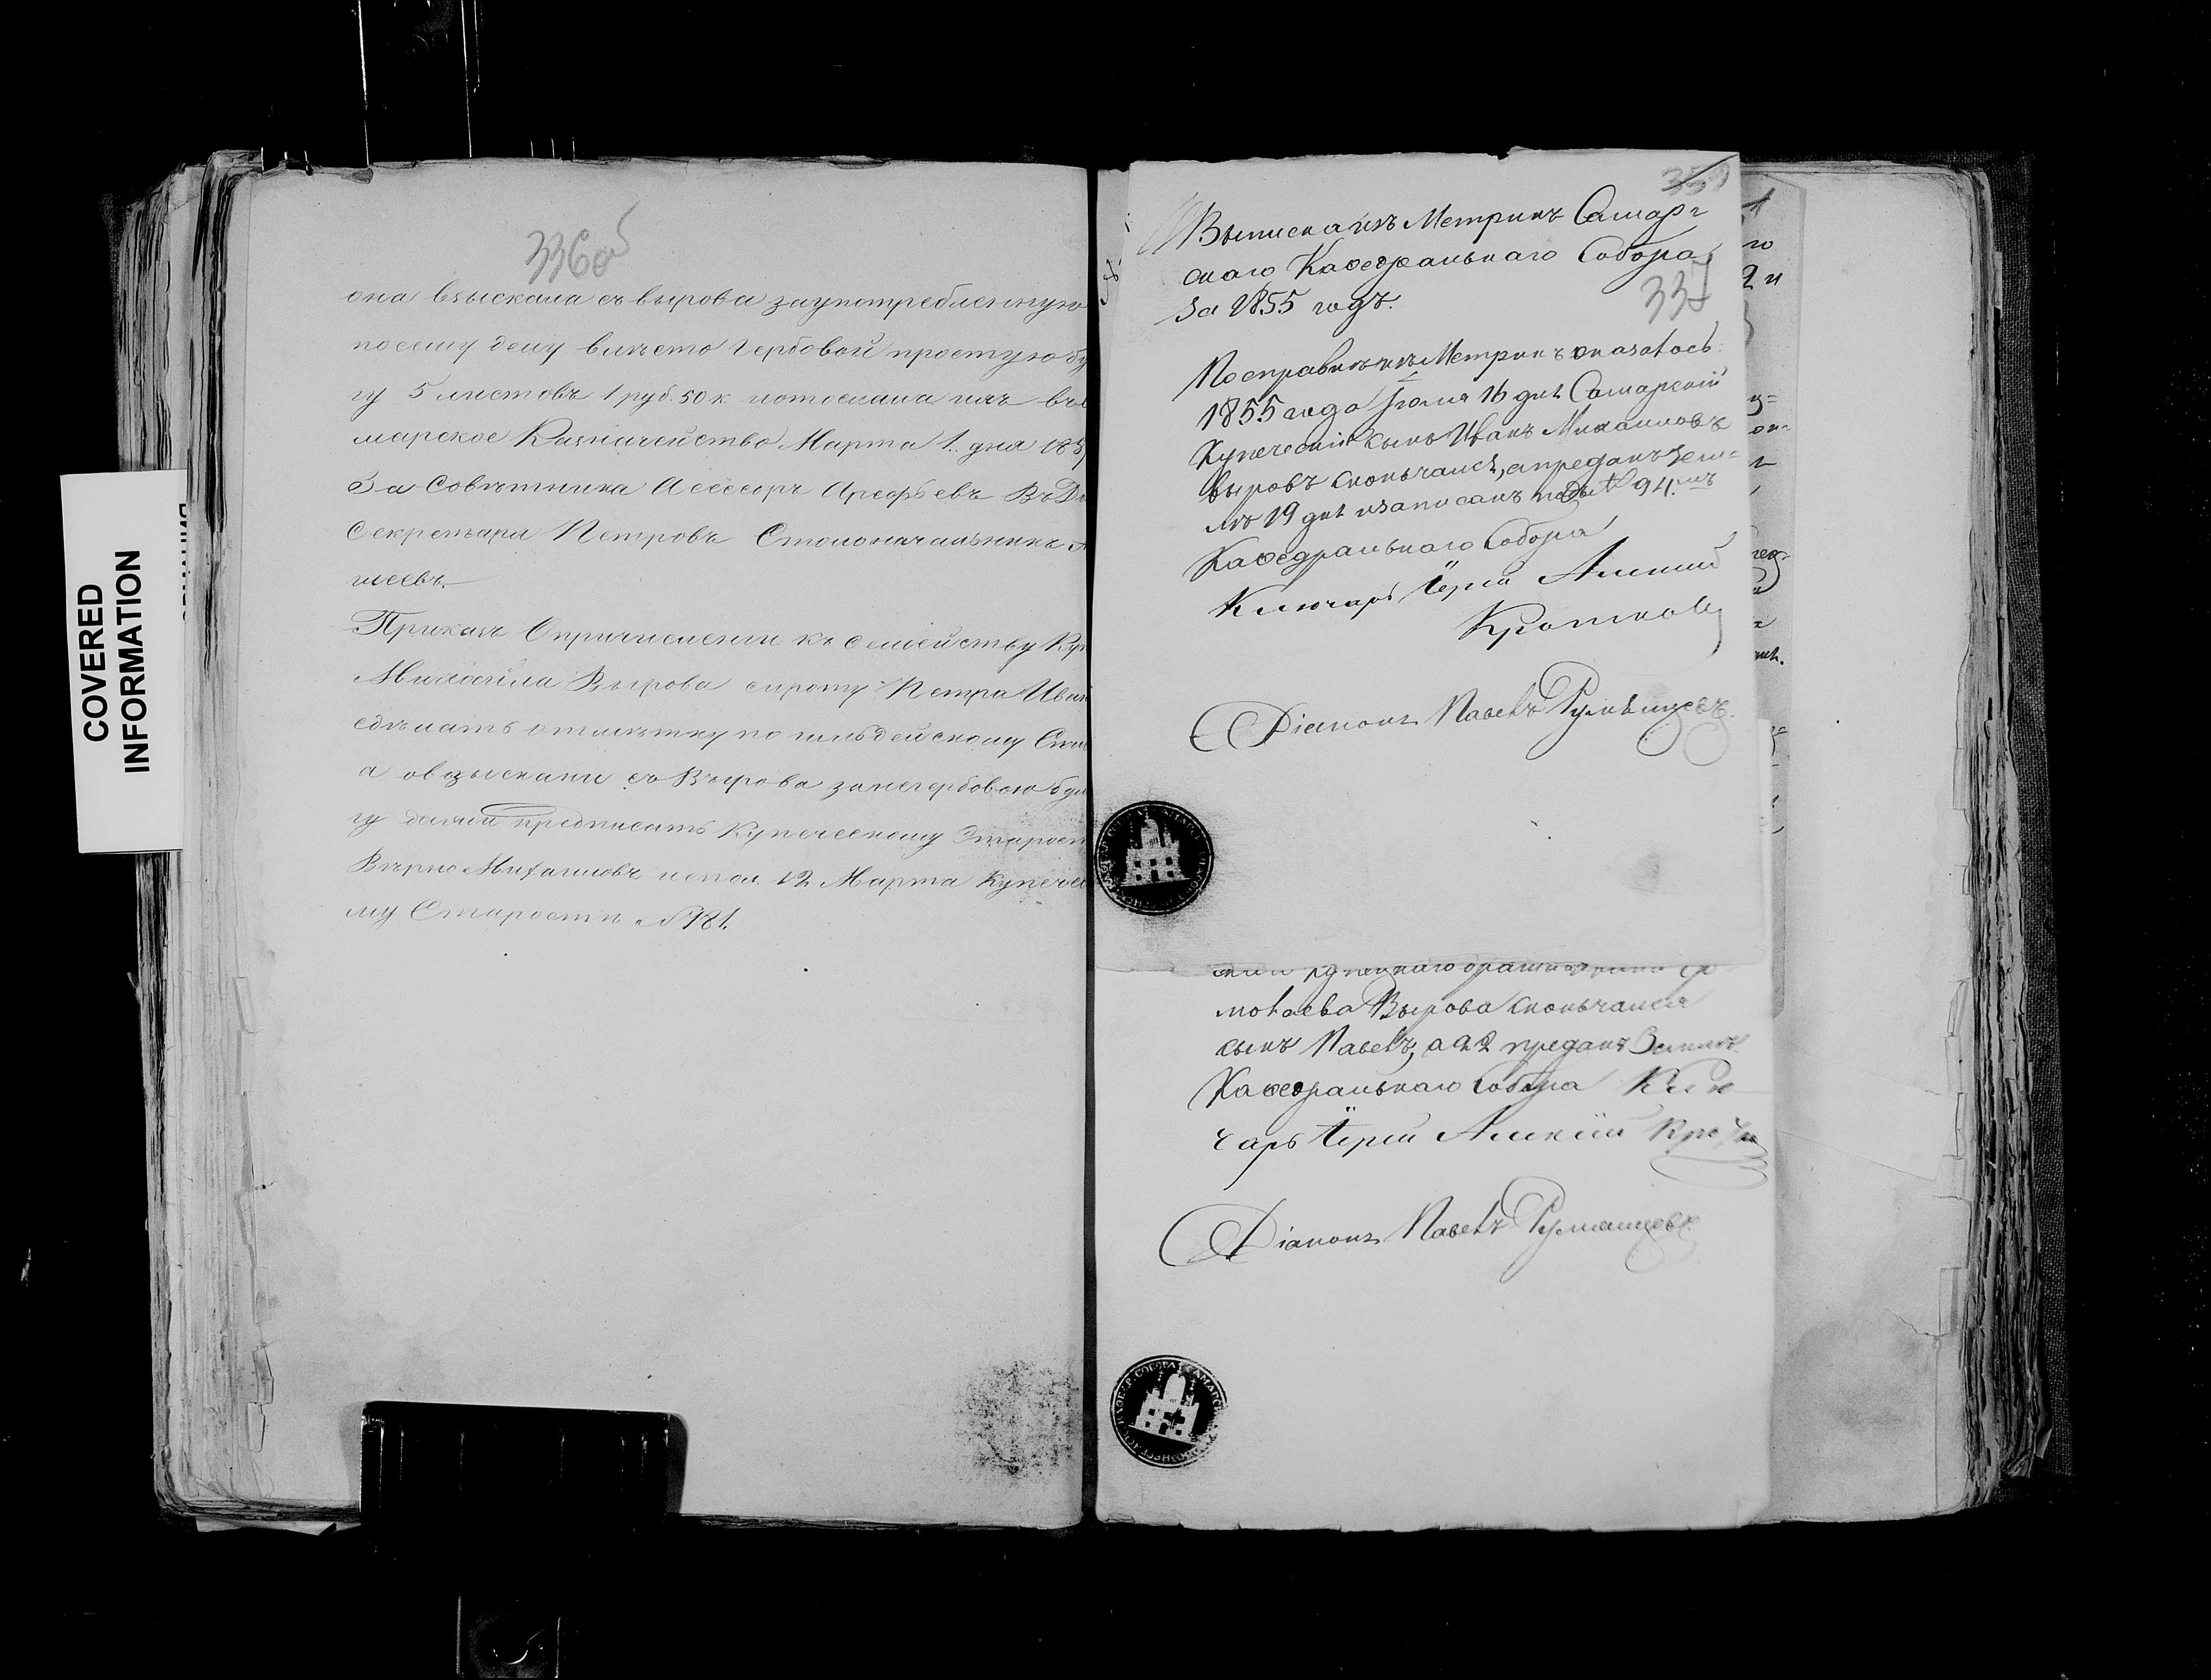 336об
она взыскала съ Вырова заупотребленную
по сему делу вместо Гербовой простую бу
гу 5 листовъ 1 руб. 50 к. и отослала ихъ въ
марское Казначейство Марта 1. дня 185
За Советника Асессоръ Арефьевъ В. Д.
Секретаря Петровъ Столоначальникъ
шеевъ.
Приказъ О причислении къ семейству Ку
Михайла Вырова сироту Петра Иван
сделать отметку по гильдейскому Спи
а о взыскании съ Вырова за негербовою бум
гу денги предписать Купеческому Старост
Верно Михаиловъ испол. 12 Марта Купечес
му Старосте № 181.
COVERED
INFORMATION
359
Выписка изъ Метрикъ Самар-
скаго Каѳедральнаго Собора
за 1855 годъ.
337
По справке изъ Метрикъ оказалось
1855 года Iюля 16 дня Самарскій
Купеческій сынъ Иванъ Михаиловъ
Выровъ скончался, а преданъ Зем-
ле 19 дня и записанъ подъ № 94.мъ
Каѳедральнаго Собора
Ключарь Iерей Алексий
Кротковъ
Діаконъ Павелъ Румянцевъ.
молаева Вырова скончался
сынъ Павелъ, а 22 преданъ Земле.
Каѳедральнаго Собора Клю-
чарь Iерей Алексiй Кротко
Діаконъ Павелъ Румянцевъ.